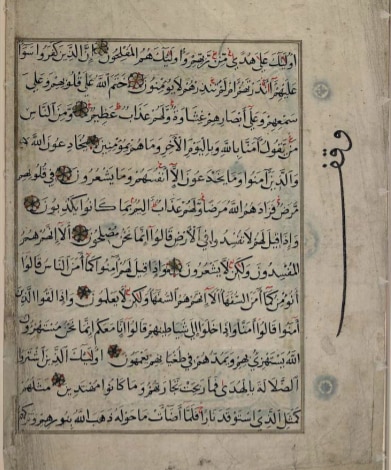 اولئك على هدى من ربهم واولئك هم المفلحون ان الذين كفروا سواء
عليهم ءانذرتهم ام لم تنذرهم لا يؤمنون ختم الله على قلوبهم وعلى
سمعهم وعلى ابصارهم غشاوة ولهم عذاب عظيم ومن الناس
من يقول امنا بالله وباليوم الاخر وما هم بمؤمنين يخادعون الله
والذين امنوا وما يخدعون الا انفسهم وما يشعرون في قلوبهم
مرض فزادهم الله مرضا ولهم عذاب اليم بما كانوا يكذبون
واذا قيل لهم لا تفسدوا في الارض قالوا انما نحن مصلحون الا انهم هم
المفسدون ولكن لا يشعرون واذا قيل لهم امنوا كما امن الناس قالوا
انؤمن كما امن السفهاء الا انهم هم السفهاء ولكن لا يعلمون واذا لقوا الذين
امنوا قالوا امنا واذا خلوا الى شياطينهم قالوا انا معكم انما نحن مستهزؤن
الله يستهزئ بهم ويمدهم في طغيانهم يعمهون اولئك الذين اشتروا
الضلالة بالهدى فما ربحت تجارتهم وما كانوا مهتدين مثلهم
كمثل الذي استوقد نارا فلما اضاءت ما حوله ذهب الله بنورهم وتركهم
وقف